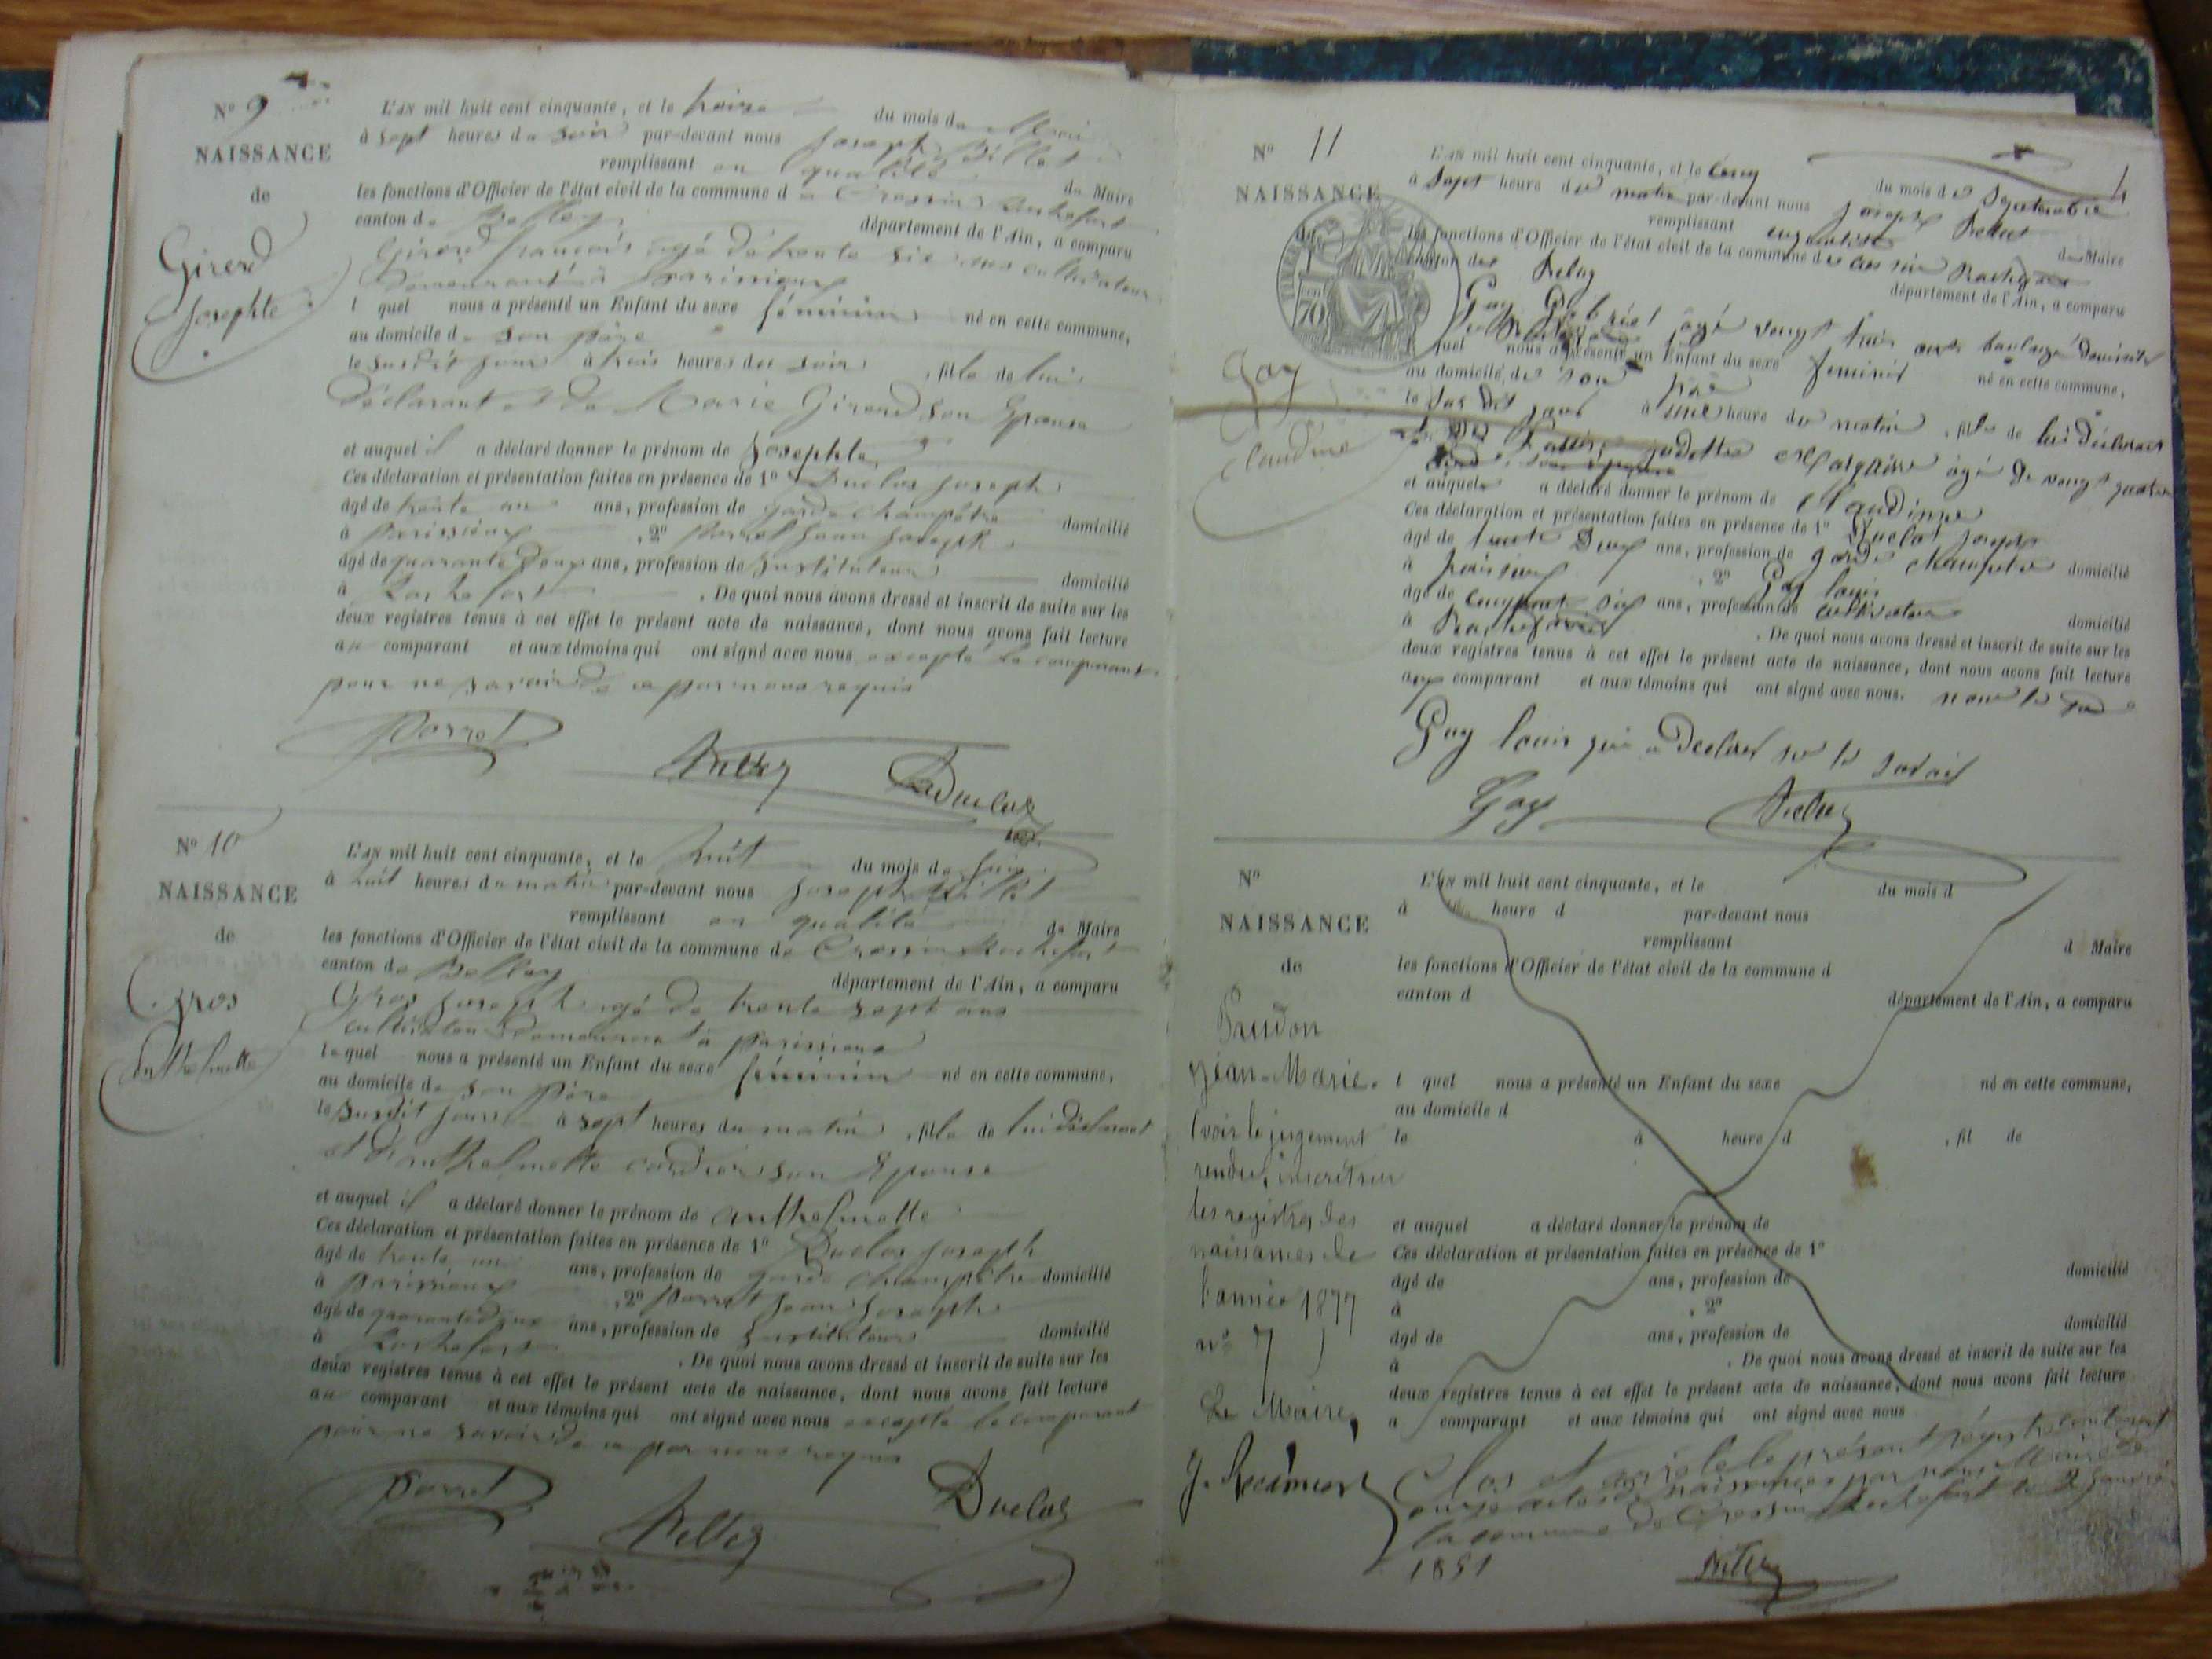 N° 9
NAISSANCE
de
Girerd
Josephte
L'AN mil huit cent cinquante, et le treize du mois de Mai
à sept heures du soir par-devant nous Joseph Billet
remplissant en qualité de Maire
les fonctions d'Officier de l'état civil de la commune de Cressin Rochefort
canton de Belley département de l'Ain, a comparu
Girerd françois agé de trente six ans cultivateur
Demeurant à parissieux
l quel nous a présenté un Enfant du sexe féminin né en cette commune,
au domicile de son père
le susdit jour à trois heures du soir, fille de lui
déclarant et de Marie Girerd son Epouse
et auquel il a déclaré donner le prénom de Josephte
Ces déclaration et présentation faites en présence de 1° Duclos Joseph
âgé de trente un ans, profession de garde champêtre domicilié
à parissieux, 2° parret jean joseph
âgé de quarante deux ans, profession de Instituteur domicilié
à Rochefort. De quoi nous avons dressé et inscrit de suite sur les
deux registres tenus à cet effet le présent acte de naissance, dont nous avons fait lecture
au comparant et aux témoins qui ont signé avec nous excepté le comparant
pour ne savoir de ce par nous requis
parret Billet Duclos
N° 10
NAISSANCE
de
Gros
anthelmette
L'AN mil huit cent cinquante, et le huit du mois de juin
à huit heures du matin par-devant nous Joseph Billet
remplissant en qualité de Maire
les fonctions d'Officier de l'état civil de la commune de Cressin Rochefort
canton de Belley département de l'Ain, a comparu
Gros joseph agé de trente sept ans
cultivateur demeurant à parissieux
lequel nous a présenté un Enfant du sexe féminin né en cette commune,
au domicile de son père
le susdit jour à sept heures du matin, fille de lui déclarant
et d'anthelmette cordier son Epouse
et auquel il a déclaré donner le prénom de anthelmette
Ces déclaration et présentation faites en présence de 1° Duclos Joseph
âgé de trente un ans, profession de garde champêtre domicilié
à parissieux, 2° parret jean joseph
âgé de quarante deux ans, profession de Instituteur domicilié
à Rochefort. De quoi nous avons dressé et inscrit de suite sur les
deux registres tenus à cet effet le présent acte de naissance, dont nous avons fait lecture
au comparant et aux témoins qui ont signé avec nous excepté le comparant
pour ne savoir de ce par nous requis
parret Billet Duclos
N° 11
NAISSANCE
de
Gay
Claudine
L'AN mil huit cent cinquante, et le cinq du mois de Septembre
à Sept heure du matin par-devant nous joseph Billet
remplissant en qualité de Maire
les fonctions d'Officier de l'état civil de la commune de
canton de Beley département de l'Ain, a comparu
Gay Gabriel agé vingt trois ans
quel nous a présenté un Enfant du sexe feminin né en cette commune,
au domicile de son père
le sus dit jour à une heure du matin, fille de lui déclarant
agé de vingt quatre
et auquel a déclaré donner le prénom de Claudinne
Ces déclaration et présentation faites en présence de 1° Duclos joseph
âgé de trente Deux ans, profession de garde champetre domicilié
à, 2° Gay louis
âgé de cinquante six ans, profession de cultivateur domicilié
à. De quoi nous avons dressé et inscrit de suite sur les
deux registres tenus à cet effet le présent acte de naissance, dont nous avons fait lecture
aux comparant et aux témoins qui ont signé avec nous.
Gay louis qui a Déclaré ne le savoir
Gay Billet
N°
NAISSANCE
de
Prudon
Jean-Marie.
(voir le jugement
rendu, inscrit sur
les registres des
naissances de
l'année 1877
n° 7)
Le Maire,
J. Récamier
L'AN mil huit cent cinquante, et le du mois d
à heure d par-devant nous
remplissant d Maire
les fonctions d'Officier de l'état civil de la commune d
canton d département de l'Ain, a comparu
l quel nous a présenté un Enfant du sexe né en cette commune,
au domicile d
le à heure d, fil de
et auquel a déclaré donner le prénom de
Ces déclaration et présentation faites en présence de 1°
âgé de ans, profession de domicilié
à, 2°
âgé de ans, profession de domicilié
à. De quoi nous avons dressé et inscrit de suite sur les
deux registres tenus à cet effet le présent acte de naissance, dont nous avons fait lecture
a comparant et aux témoins qui ont signé avec nous
Clos et arrêté le présent régistre contenant
onze actes de naissances par nous Maire de
la commune de Cressin Rochefort le janvier
1851
Billet